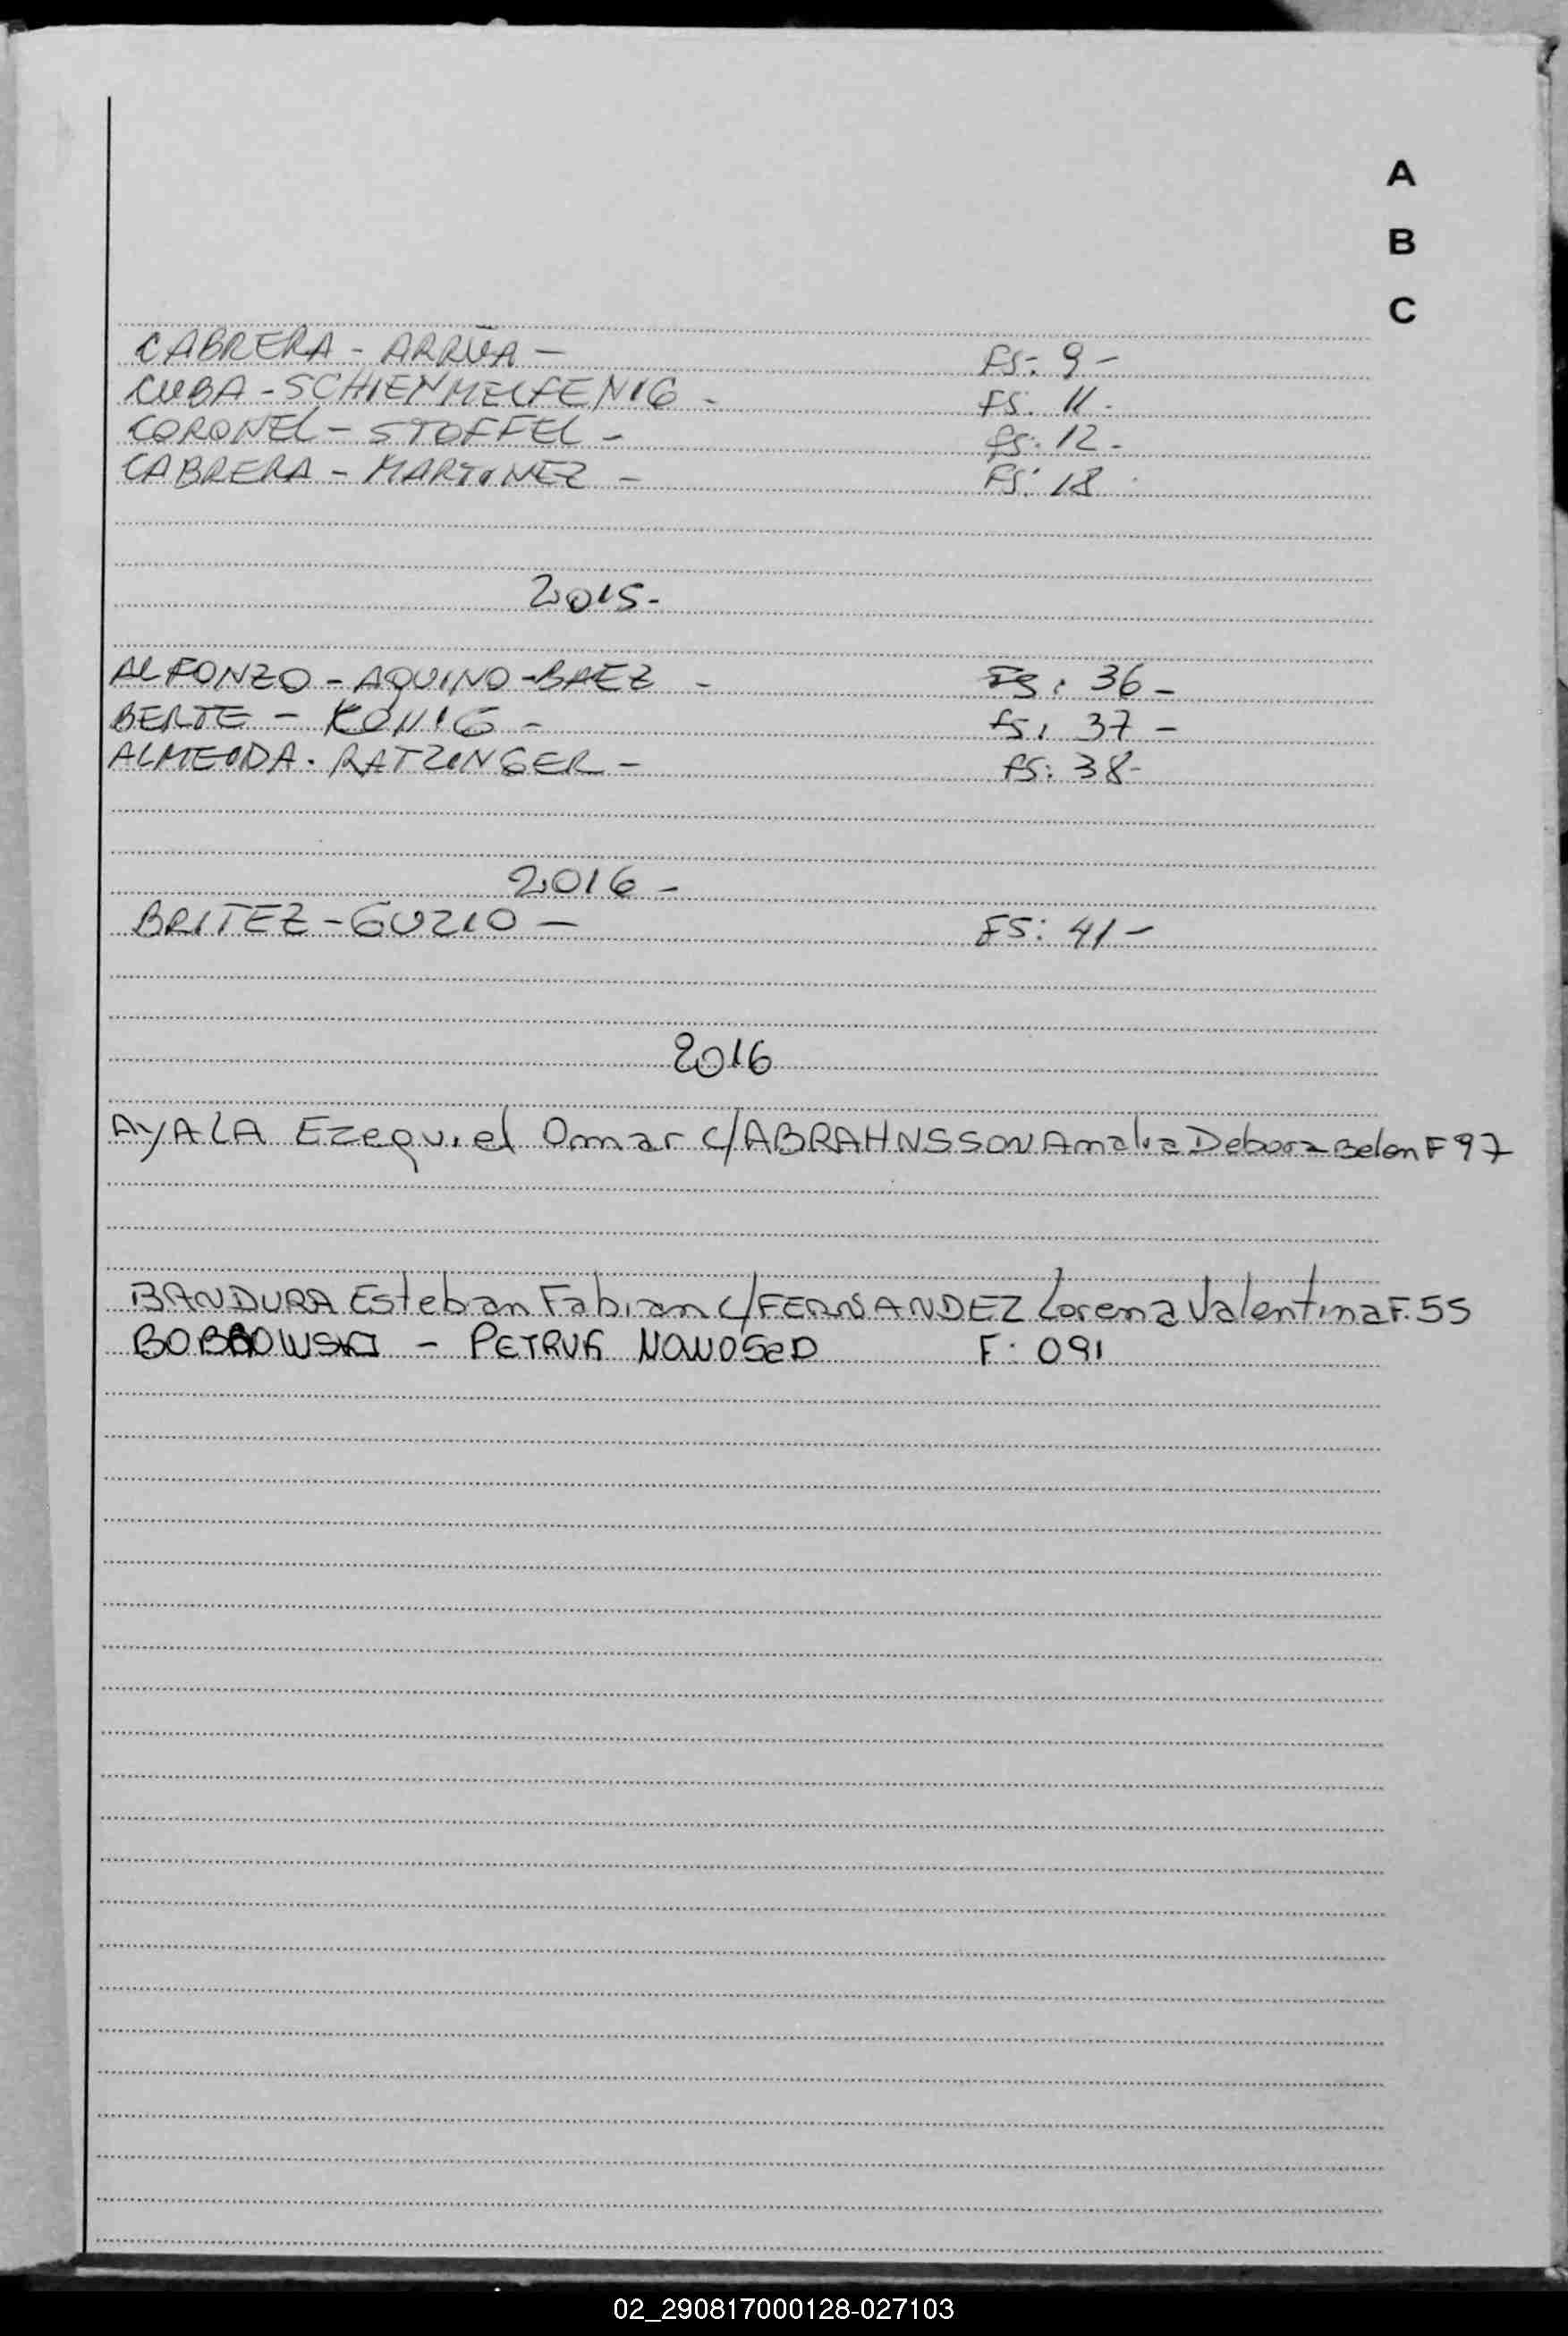 A
B
C
CABRERA - ARRŨA - fs: 9 -
CUBA - SCHIENMELFENIG - FS: 11 -
CORONEL - STOFFEL - fs: 12 -
CABRERA - MARTINEZ - FS: 18
2015-
ALFONZO - AQUINO - BAEZ - FS: 36 -
BERTE - KONIG - fs: 37 -
ALMEIDA - RATZINGER - fs: 38-
2016 -
BRITEZ - GUZIO - FS: 41 -
2016
AYALA Ezequiel Omar c/ABRAHNSSON Amalia Debora Belen F 97
BANDURA Esteban Fabian c/FERNANDEZ Lorena Valentina F. 55
BOBROWSKI - PETRUK F: 091
02_290817000128-027103